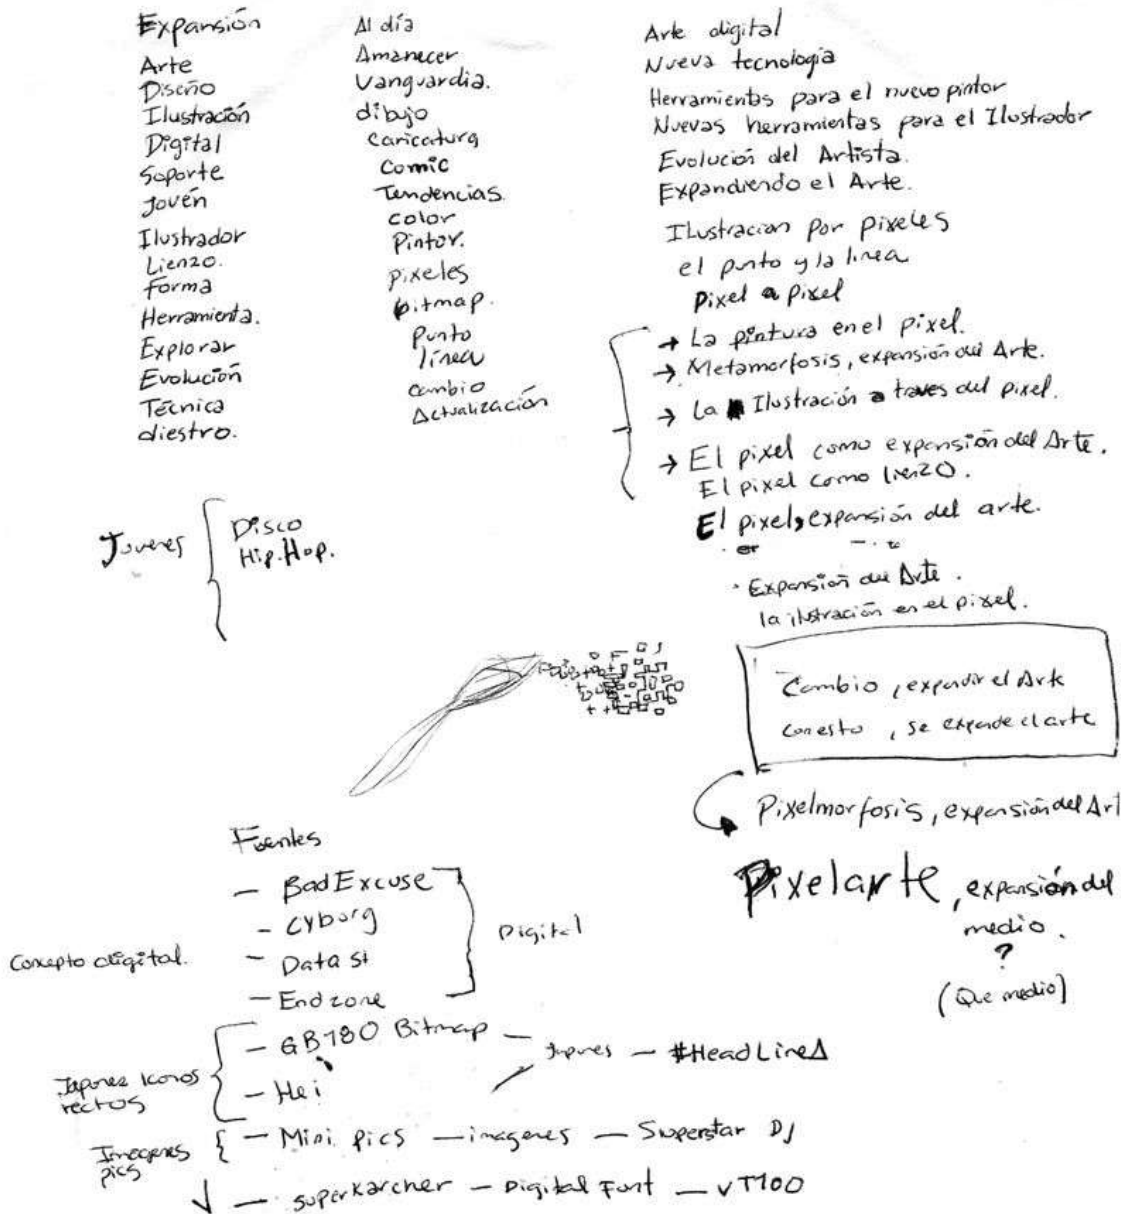 Expansión
Arte
Diseño
Ilustración
Digital
Soporte
Jovén
Ilustrador
Lienzo.
Forma
Herramienta.
Explorar
Evolución
Técnica
diestro.
Al día
Amanecer
Vanguardia.
dibujo
Caricatura
Comic
Tendencias.
color
Pintor.
pixeles
bitmap.
Punto
línea
Cambio
Actualización
Arte digital
Nueva tecnología
Herramientas para el nuevo pintor
Nuevas herramientas para el Ilustrador
Evolución del Artista.
Expandiendo el Arte.
Ilustracion por pixeles
el punto y la linea
Pixel a pixel
→ La pintura en el pixel.
→ Metamorfosis, expansión del Arte.
→ La Ilustración a traves del pixel.
→ El pixel como expansión del Arte.
El pixel como lienzo.
El pixel, expansión del arte.
Expansión del Arte.
la ilustración en el pixel.
Cambio, expandir el Arte
con esto, se expande el arte
Pixelmorfosis, expansión del Art
Pixelarte, expansión del
medio.
?
(Que medio)
Jovenes
Disco
Hip.Hop.
Fuentes
Concepto digital.
- BadExcuse
- Cyborg
- Data st
- Endzone
Digital
Japones Iconos
rectos
- GB180 Bitmap -
- Hei
Japones - #HeadLineA
Imagenes
pics
- Mini pics - imagenes - Superstar DJ
- superkarcher - Digital Font - VT100